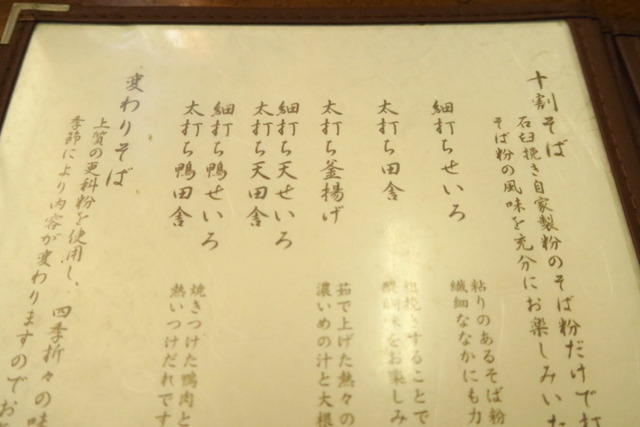 十割そば
石臼挽き自家製粉のそば粉だけで打
そば粉の風味を充分にお楽しみいた
細打ちせいろ
粘りのあるそば粉
繊細ななかにも力
太打ち田舎
粗挽きすることで
醍醐味をお楽しみ
太打ち釜揚げ
茹で上げた熱々の
濃いめの汁と大根
細打ち天せいろ
太打ち天田舎
細打ち鴨せいろ
太打ち鴨田舎
焼きつけた鴨肉と
熱いつけだれです
変わりそば
上質の更科粉を使用し、四季折々の味
季節により内容が変わりますのでお